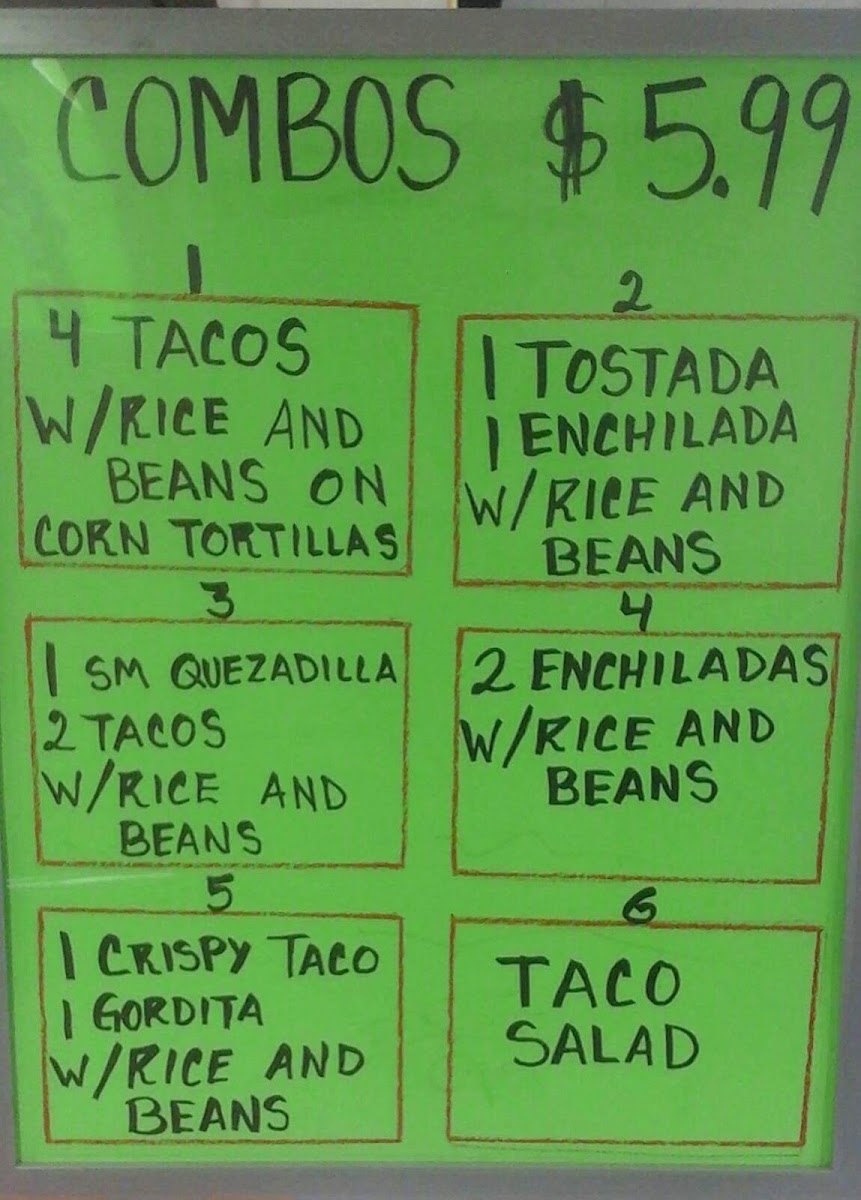 COMBOS $5.99
1
4 TACOS
W/RICE AND
BEANS ON
CORN TORTILLAS
2
1 TOSTADA
1 ENCHILADA
W/RICE AND
BEANS
3
1 SM QUEZADILLA
2 TACOS
W/RICE AND
BEANS
4
2 ENCHILADAS
W/RICE AND
BEANS
5
1 CRISPY TACO
1 GORDITA
W/RICE AND
BEANS
6
TACO
SALAD